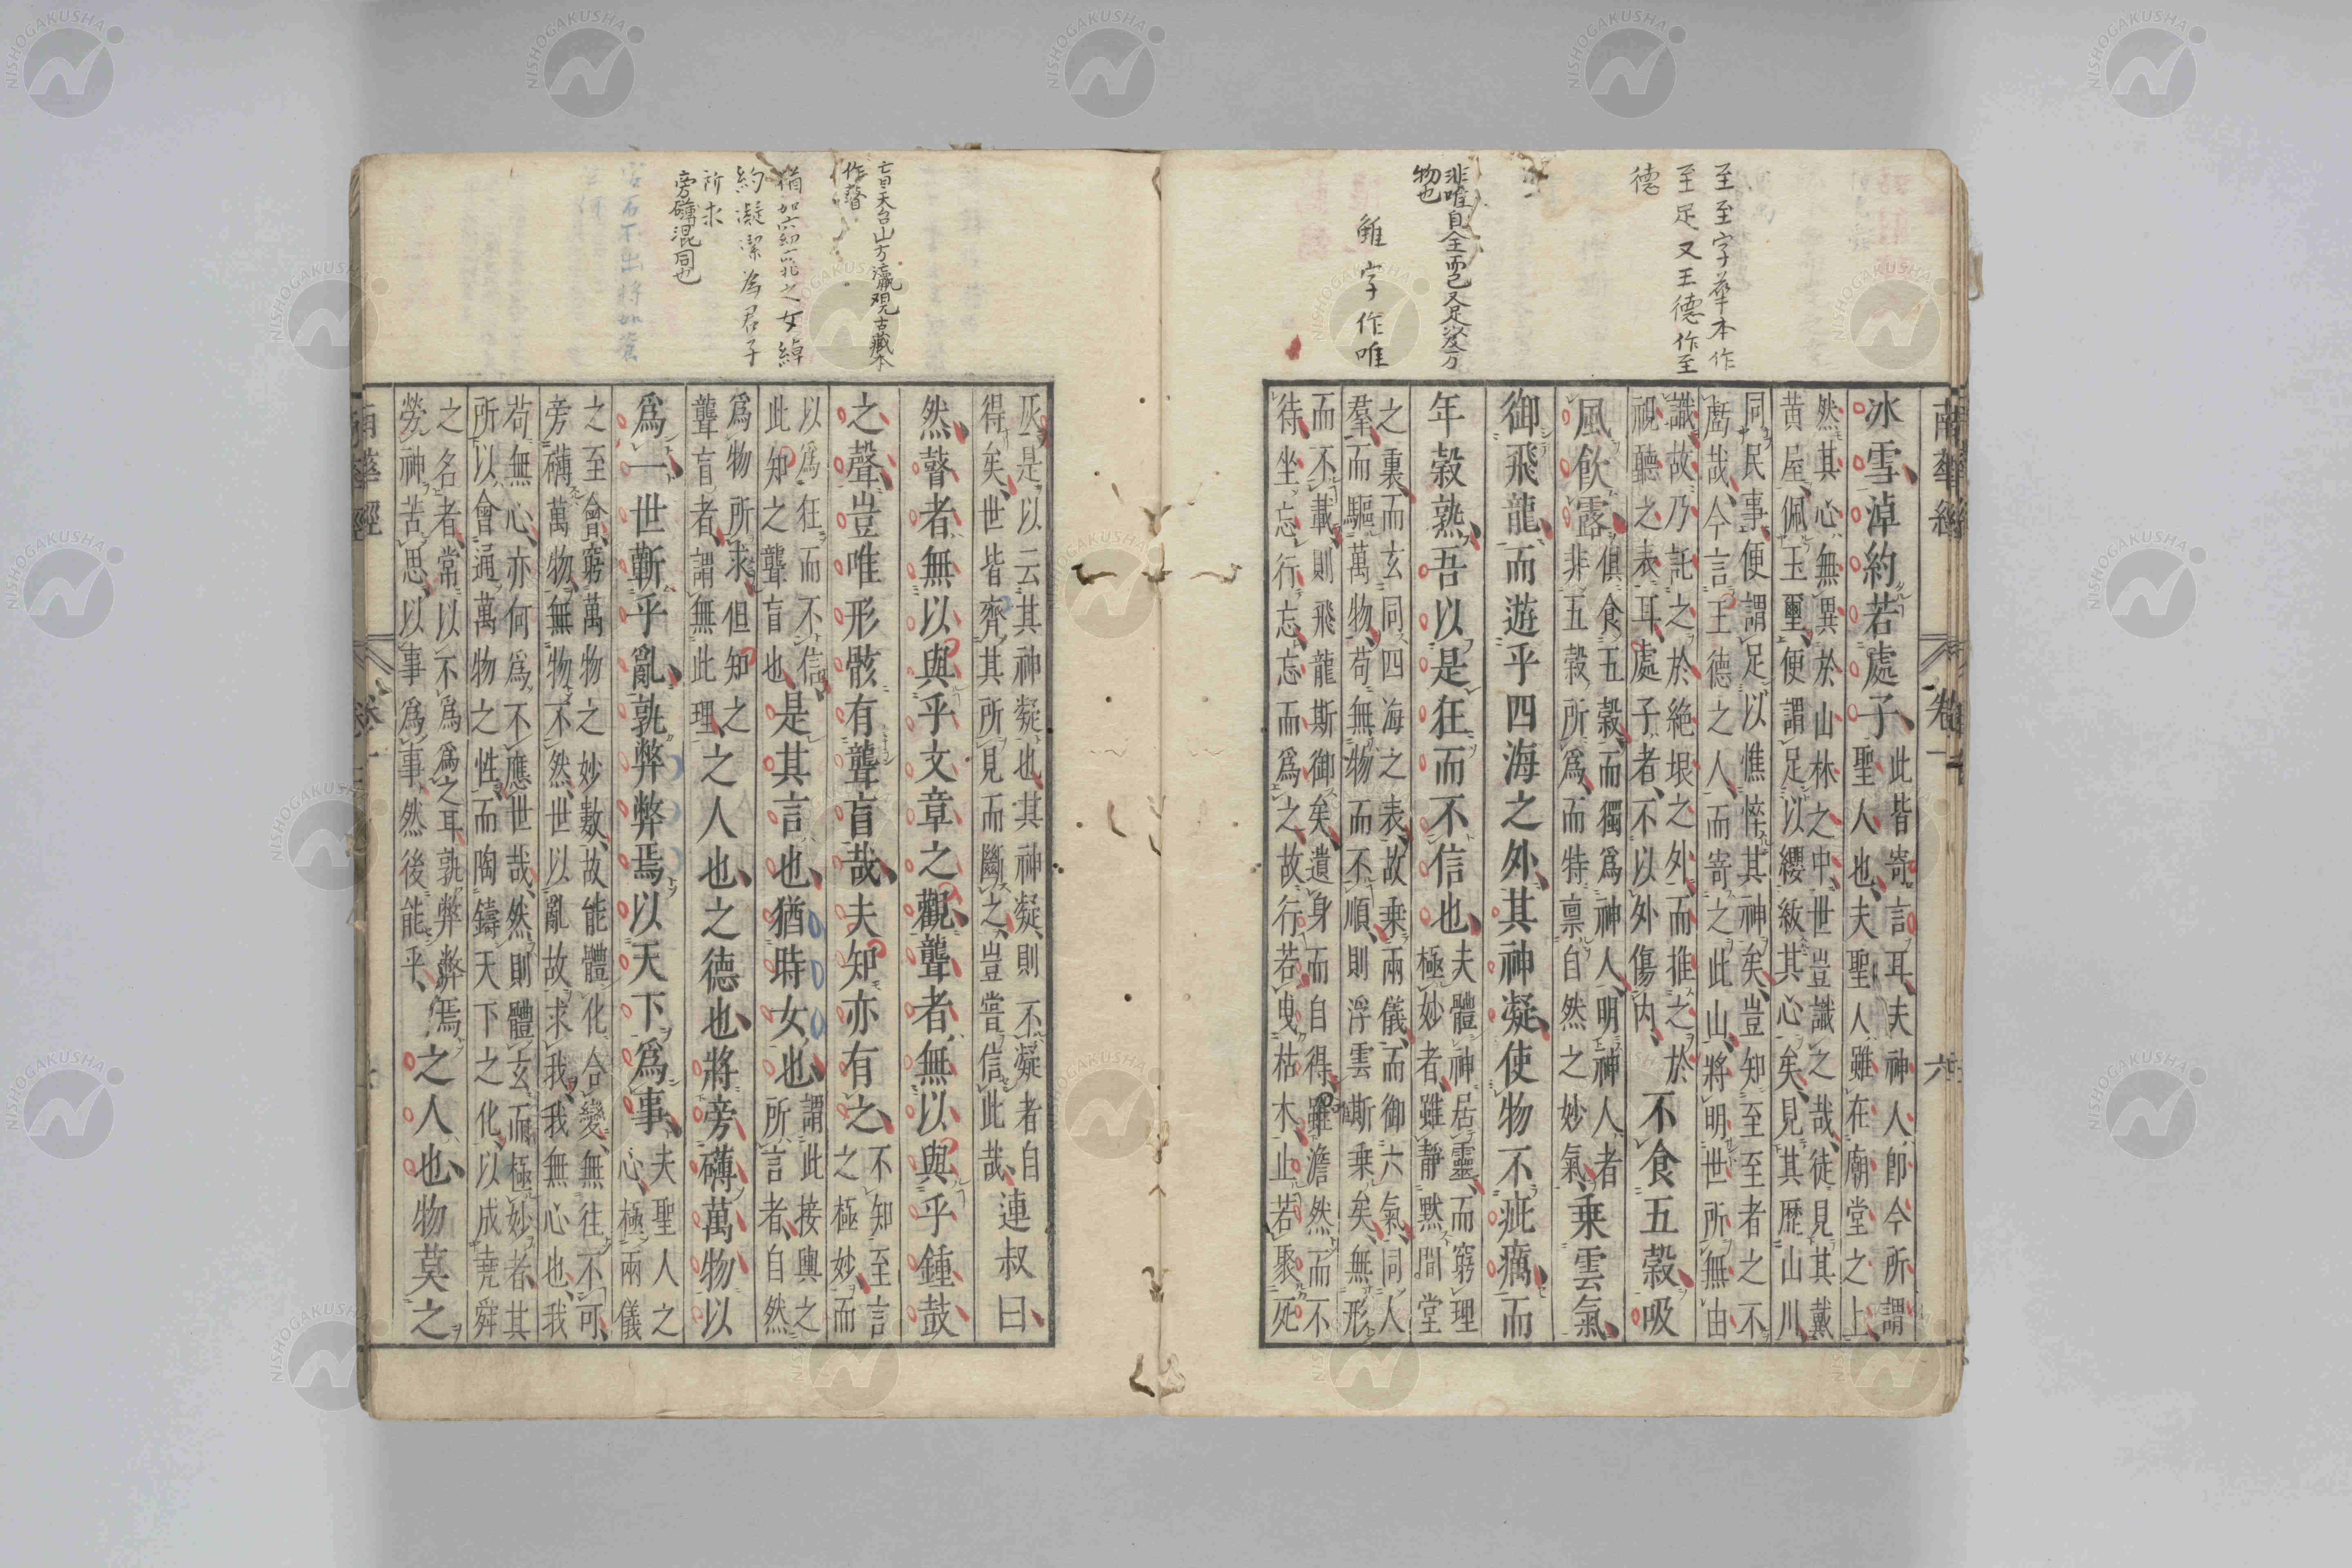 南華經 卷一 六
至至字莘本作
至足又王德作至
德
非唯自全而已又足澄万
物也
雖字作唯
冰雪淖約若處子
此皆寄言耳夫神人即今所謂
聖人也夫聖人雖在廟堂之上
然其心無異於山林之中世豈識之哉徒見其戴
黃屋佩玉璽便謂足以纓紱其心矣見其歷山川
同民事便謂足以憔悴其神矣豈知至至者之不
虧哉今言王德之人而寄之此山將明世所無由
識故乃託之於絕垠之外而推之於
視聽之表耳處子者不以外傷內
不食五穀吸
風飲露
俱食五穀而獨爲神人明神人者
非五穀所爲而特禀自然之妙氣
乘雲氣
御飛龍而遊乎四海之外其神凝使物不疵癘而
年穀熟吾以是狂而不信也
夫體神居靈而窮理
極妙者雖靜默間堂
之裏而玄同四海之表故乘兩儀而御六氣同人
羣而驅萬物苟無物而不順則浮雲斯乘矣無形
而不載則飛龍斯御矣遺身而自得雖澹然而不
待坐忘行忘忘而爲之故行若曳枯木止若聚死
盲天台山方瀛觀古藏本
作瞽
猶如六幼一元之女綽
約凝潔為君子
所求
旁礴混同也
灰是以云其神凝也其神凝則不凝者自
得矣世皆齊其所見而斷之豈嘗信此哉
連叔曰
然瞽者無以與乎文章之觀聾者無以與乎鍾鼓
之聲豈唯形骸有聾盲哉夫知亦有之
不知至言
之極妙而
以爲狂而不信
此知之聾盲也
是其言也猶時女也
謂此接輿之
所言者自然
爲物所求但知之
聾盲者謂無此理
之人也之德也將旁礴萬物以
爲一世蘄乎亂孰弊弊焉以天下爲事
夫聖人之
心極兩儀
之至會窮萬物之妙數故能體化合變無往不可
旁礴萬物無物不然世以亂故求我我無心也我
苟無心亦何爲不應世哉然則體玄而極妙者其
所以會通萬物之性而陶鑄天下之化以成堯舜
之名者常以不爲爲之耳孰弊弊焉
勞神苦思以事爲事然後能乎
之人也物莫之
南華經 卷一
NISHOGAKUSHA